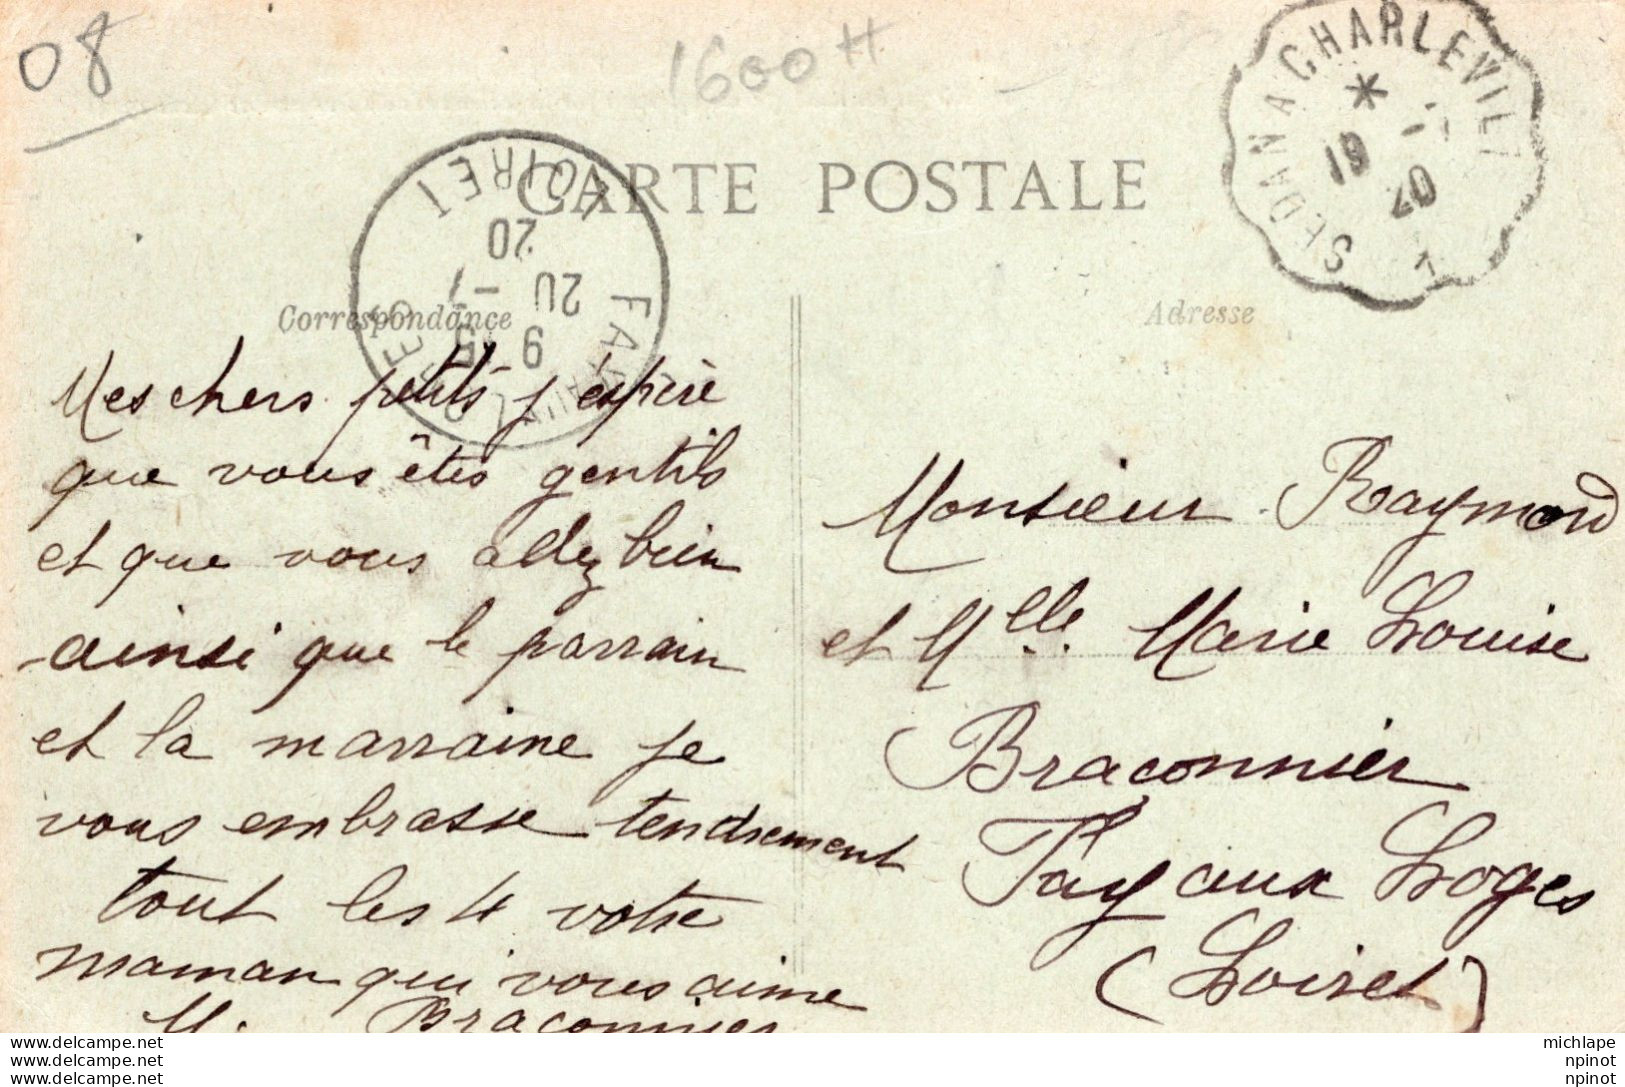 08
1600 H
SEDAN A CHARLEVILL
19 -1
20
1
CARTE POSTALE
FAY AUX LOGES
LOIRET
9 15
20 -1
20
Correspondance
Mes chers petits j'espère
que vous êtes gentils
et que vous allez bien
ainsi que le parrain
et la marraine je
vous embrasse tendrement
tout les 4 votre
maman qui vous aime
M. Braconnier
Adresse
Monsieur Raymond
et Mlle Marie Louise
Braconnier
Fay aux Loges
(Loiret)
www.delcampe.net
www.delcampe.net
www.delcampe.net
michlape
npinot
npinot